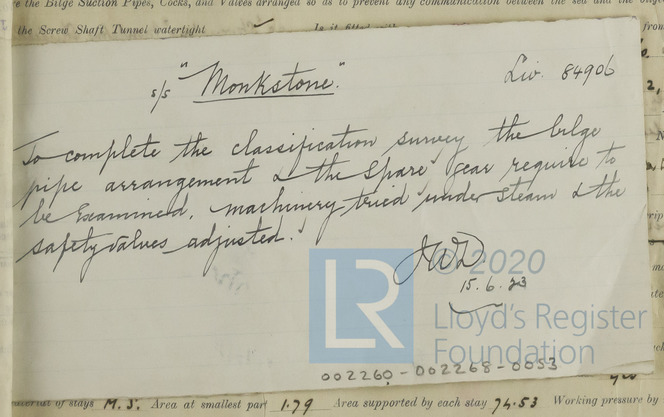 re the Bilge Suction Pipes, Cocks, and Valves arranged so as to prevent any communication between the sea and the
the Screw Shaft Tunnel watertight Is it fitted with
s/s "Monkstone" Liv. 84906
To complete the classification survey the bilge
pipe arrangement & the Spare gear require to
be Examined, machinery tried under steam & the
safety valves adjusted.
JWD
15.6.23
LR
© 2020
Lloyd's Register
Foundation
002260-002268-0053
of stays M.S. Area at smallest part 1.79 Area supported by each stay 74.53 Working pressure by